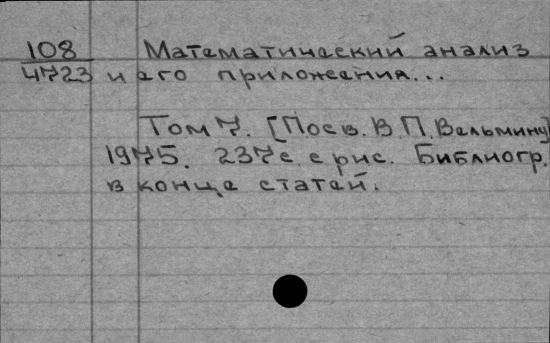 108 Математический анализ
4723 и его приложения...
Том 7. [Посв. В.П. Вельмину]
1975. 237с. с рис. Библиогр.
в конце статей.